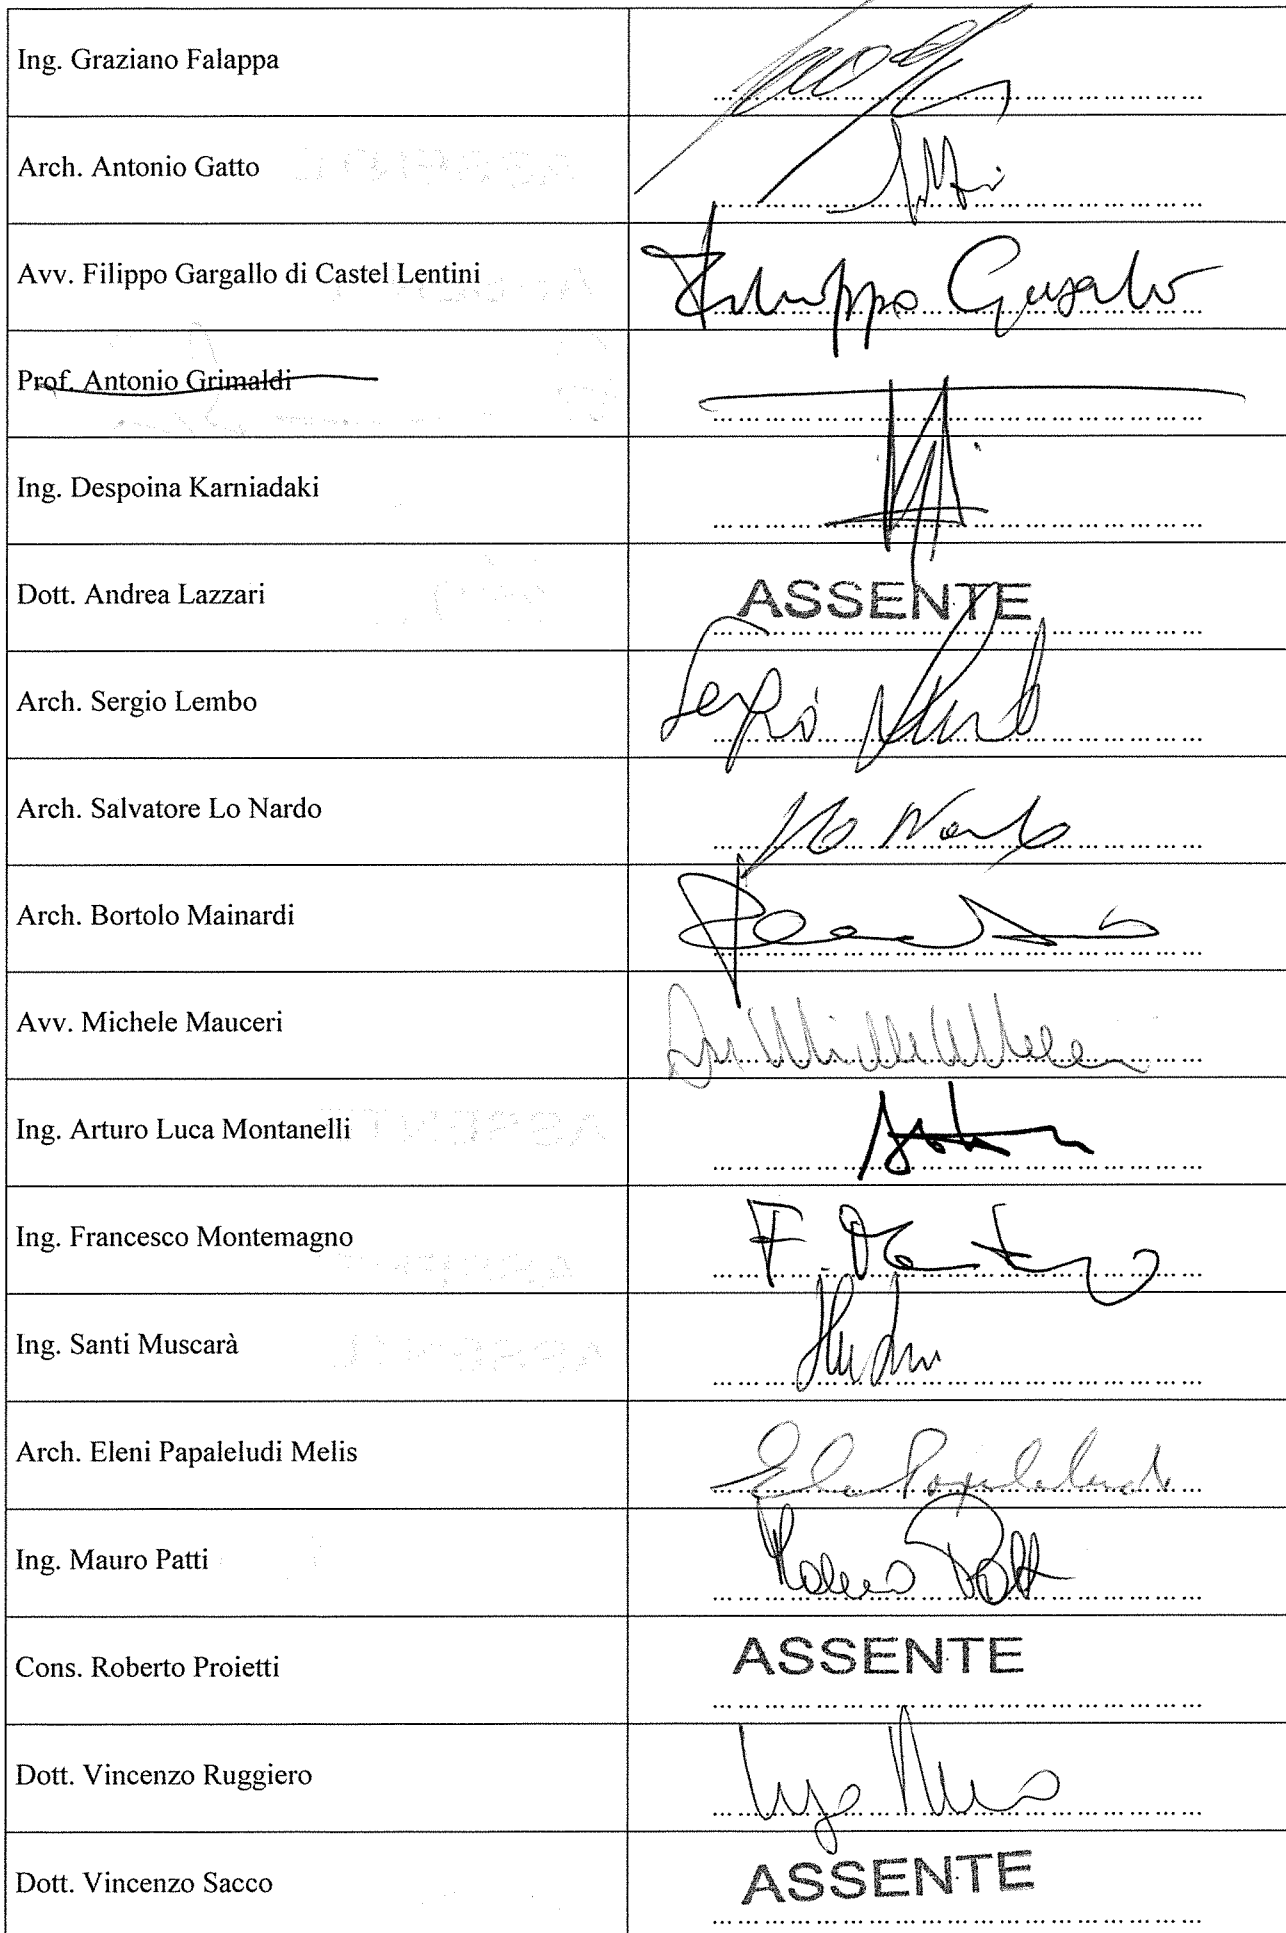 Ing. Graziano Falappa
Arch. Antonio Gatto
Avv. Filippo Gargallo di Castel Lentini
Filippo Gargallo
Prof. Antonio Grimaldi
Ing. Despoina Karniadaki
Dott. Andrea Lazzari
ASSENTE
Arch. Sergio Lembo
Sergio Lembo
Arch. Salvatore Lo Nardo
Lo Nardo
Arch. Bortolo Mainardi
Avv. Michele Mauceri
Ing. Arturo Luca Montanelli
Ing. Francesco Montemagno
Ing. Santi Muscarà
Arch. Eleni Papaleludi Melis
Ing. Mauro Patti
Mauro Patti
Cons. Roberto Proietti
ASSENTE
Dott. Vincenzo Ruggiero
Dott. Vincenzo Sacco
ASSENTE